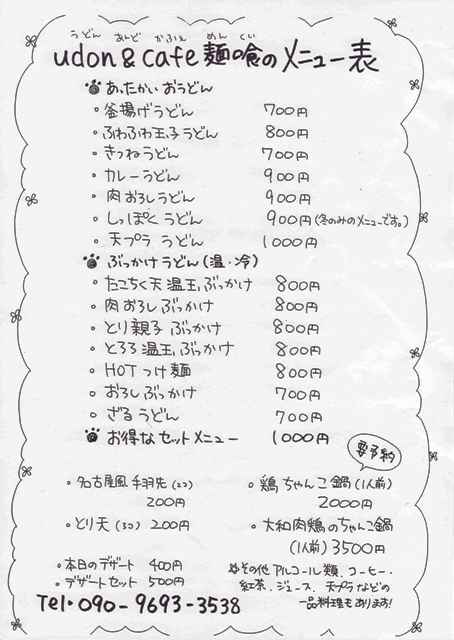 うどん あんど かふぇ めん くい
udon & cafe 麺喰のメニュー表
あったかいおうどん
・釜揚げうどん 700円
・ふわふわ玉子うどん 800円
・きつねうどん 700円
・カレーうどん 900円
・肉おろしうどん 900円
・しっぽくうどん 900円(冬のみのメニューです。)
・天プラうどん 1000円
ぶっかけうどん(温・冷)
・たこちく天温玉ぶっかけ 800円
・肉おろしぶっかけ 800円
・とり親子ぶっかけ 800円
・とろろ温玉ぶっかけ 800円
・HOTつけ麺 800円
・おろしぶっかけ 700円
・ざるうどん 700円
お得なセットメニュー 1000円
要予約
・名古屋風手羽先(2コ)
200円
・とり天(3コ) 200円
・鶏ちゃんこ鍋(1人前)
2000円
・大和肉鶏のちゃんこ鍋
(1人前)3500円
・本日のデザート 400円
・デザートセット 500円
※その他アルコール類、コーヒー、
紅茶、ジュース、天プラなどの
一品料理もあります!
Tel・090-9693-3538